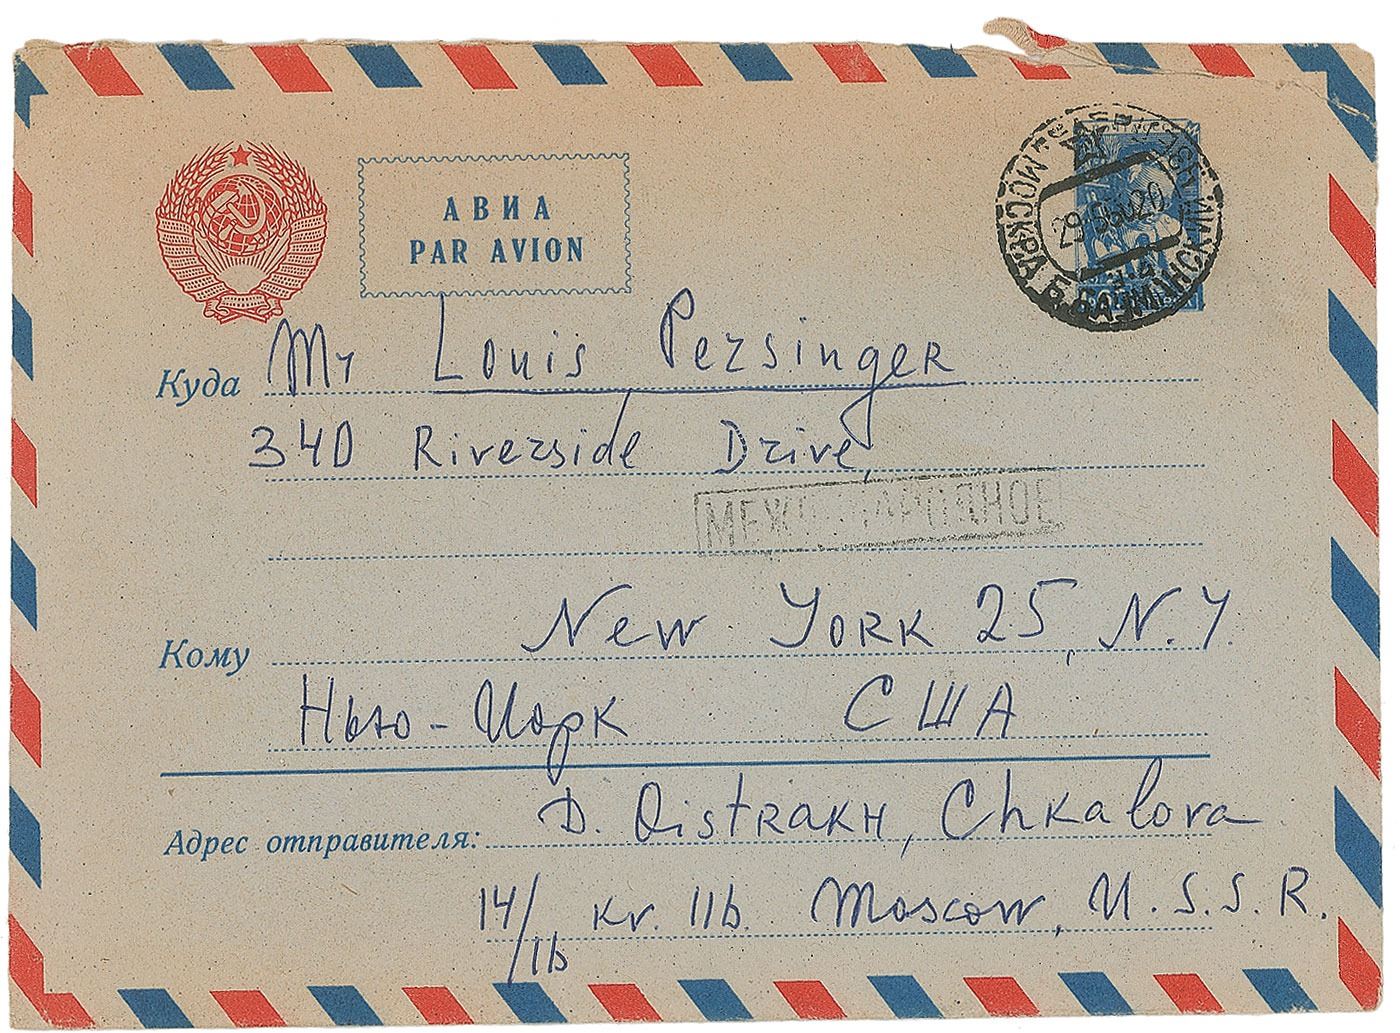 АВИА
PAR AVION
МОСКВА
29-5
Куда Mr Louis Persinger
340 Riverside Drive,
МЕЖДУНАРОДНОЕ
New York 25, N.Y.
Кому
Нью-Йорк США
Адрес отправителя: D. Oistrakh, Chkalova
14/16 kv. 116. Moscow, U.S.S.R.